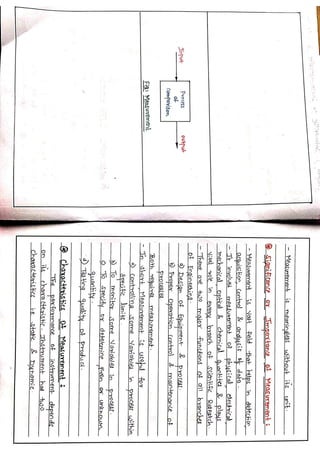 Input
Process
of
comparison
output
Fig: Measurement
- Measurement is meaningless without its unit
* Significance or Importance of Measurement:
- Measurement is vast field that helps in detection,
acquisition, control & analysis of data.
- It involves measurement of physical, electrical,
mechanical, optical & chemical quantities & plays
vital role in every branch of scientific research
- There are two major functions of all branches
of Engineering
a) Design of Equipment & process
b) Proper operation, control & maintenance of
process
Both requires measurement
- In short Measurement is useful for
a) Controlling some variables in process within
specific limits
b) To monitor some variables in process
c) To specify or determine of an unknown
quantity
d) Testing quality of product
* Characteristics of Measurement:
The performance of instruments depends
on its characteristics. Instrument has two
characteristics ie static & Dynamic